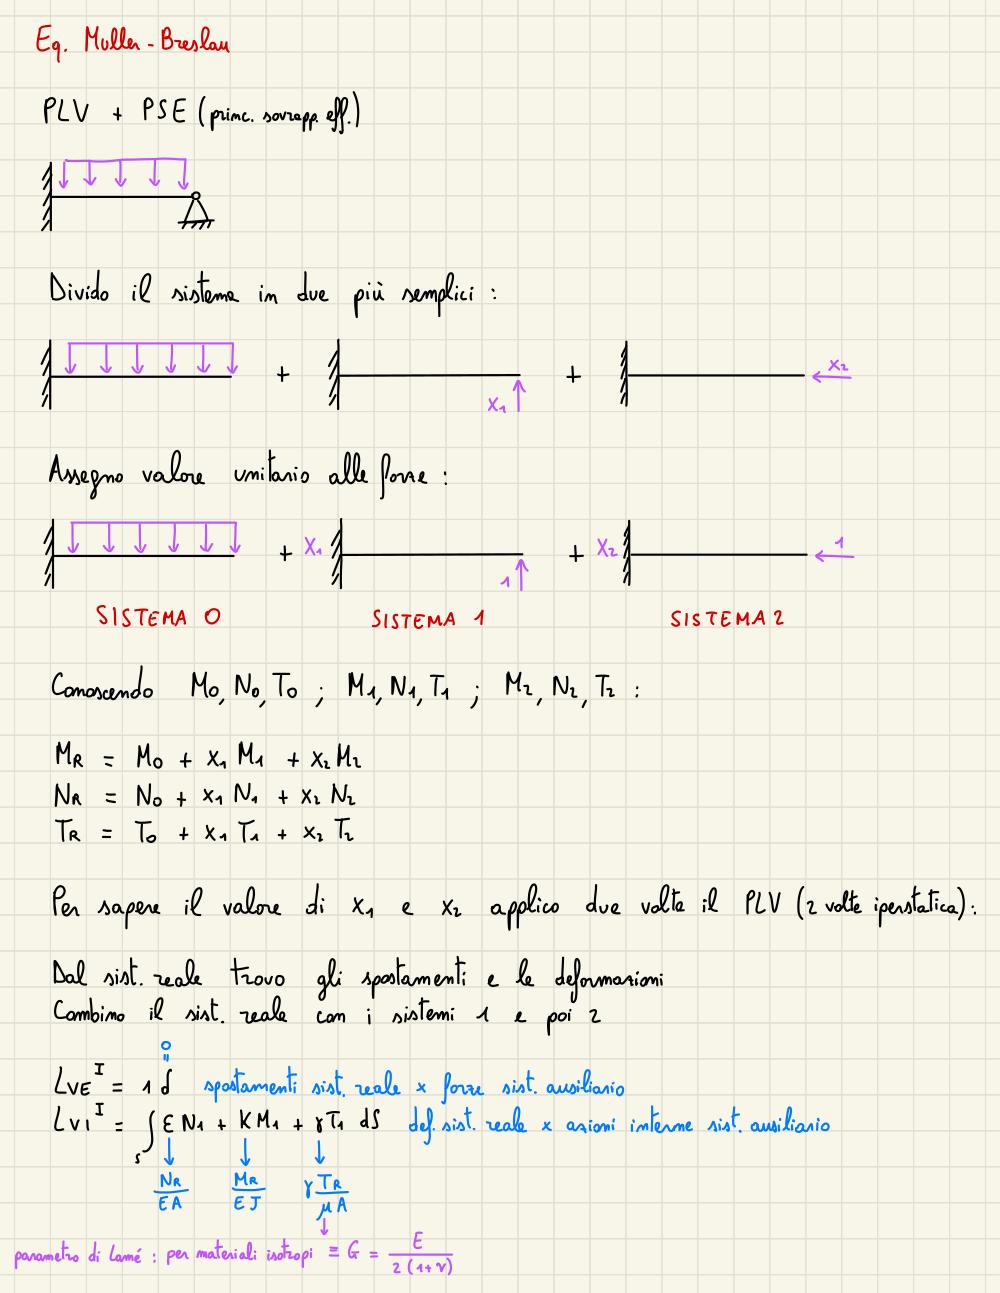 Eq. Muller-Breslau
PLV + PSE (princ. sovrapp. eff.)
Divido il sistema in due più semplici :
+ X₁ + X₂
Assegno valore unitario alle forze :
+ X₁ 1 + X₂ 1
SISTEMA 0 SISTEMA 1 SISTEMA 2
Conoscendo M₀, N₀, T₀ ; M₁, N₁, T₁ ; M₂, N₂, T₂ :
M_R = M₀ + X₁ M₁ + X₂ M₂
N_R = N₀ + X₁ N₁ + X₂ N₂
T_R = T₀ + X₁ T₁ + X₂ T₂
Per sapere il valore di X₁ e X₂ applico due volte il PLV (2 volte iperstatica) :
Dal sist. reale trovo gli spostamenti e le deformazioni
Combino il sist. reale con i sistemi 1 e poi 2
0
=
L_VE^I = 1 δ spostamenti sist. reale x forze sist. ausiliario
L_VI^I = ∫_S ε N₁ + K M₁ + γ T₁ dS def. sist. reale x azioni interne sist. ausiliario
↓ ↓ ↓
N_R/EA M_R/EJ γ T_R/μA
↓
parametro di Lamé : per materiali isotropi ≡ G = E/2(1+ν)